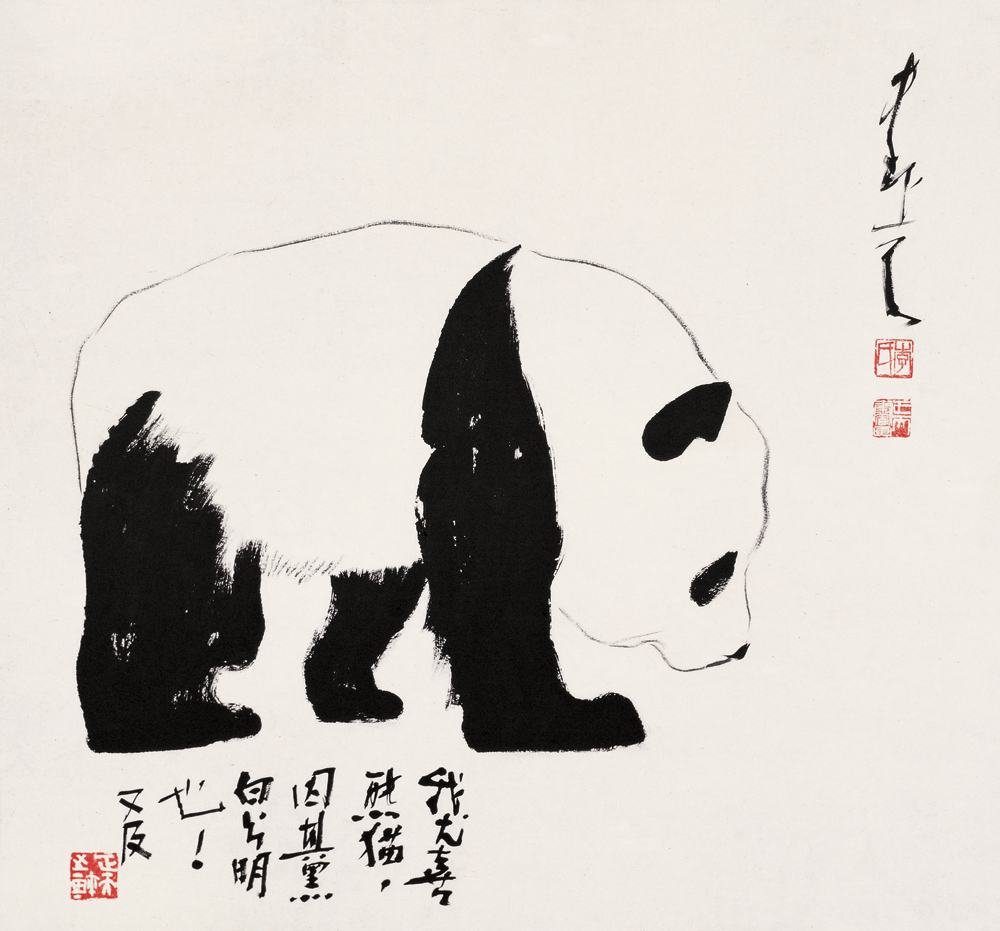 李氏
我尤喜
熊猫，
因其黑
白分明
也！
又及